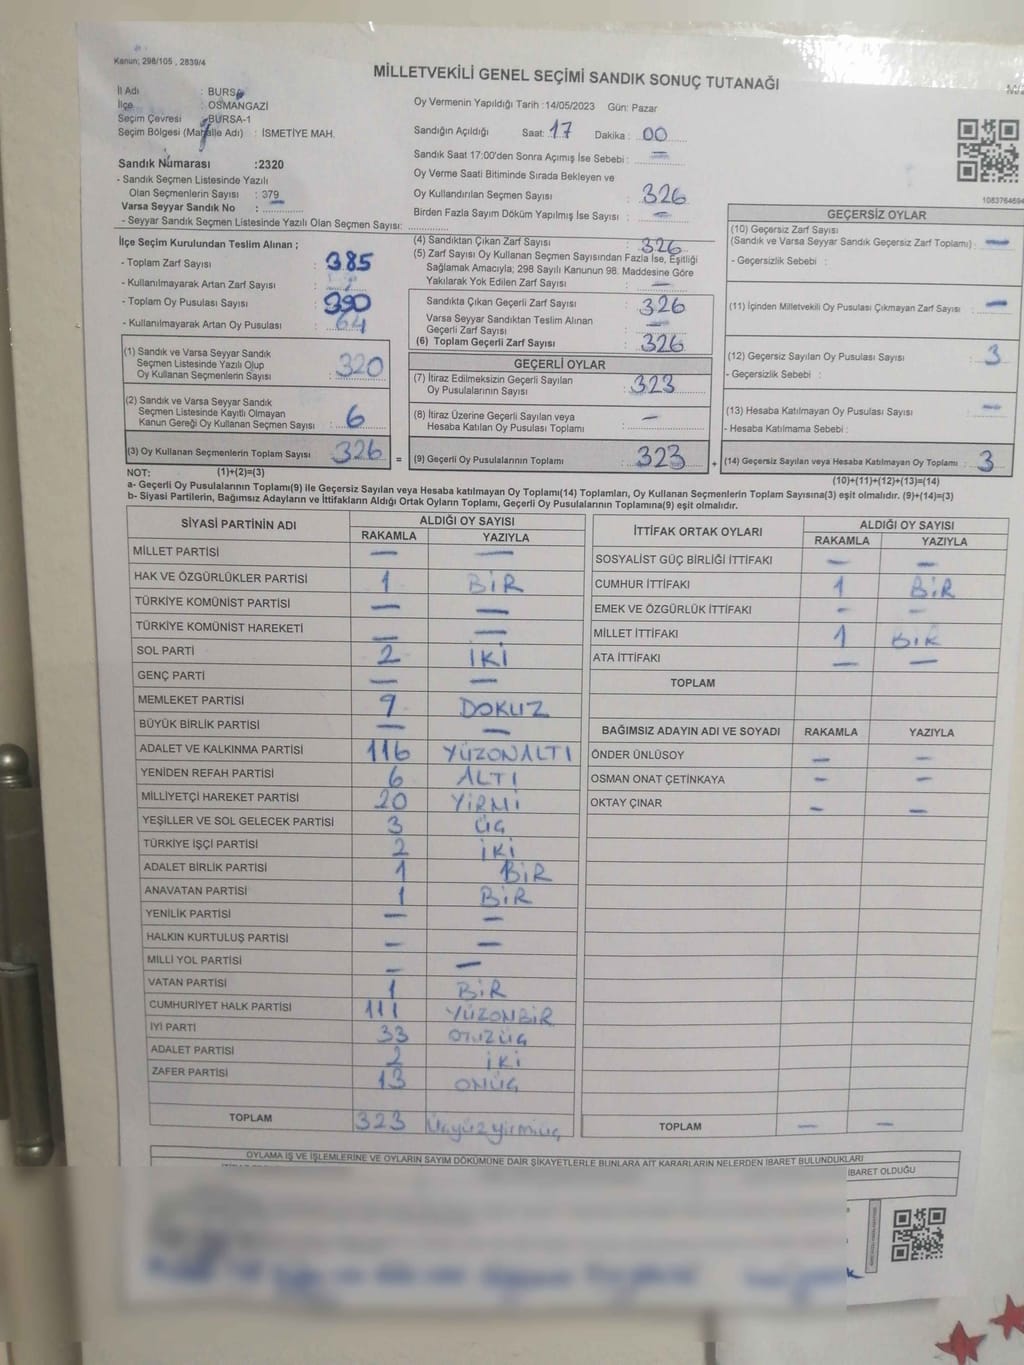 Kanun; 298/105 , 2839/4
MİLLETVEKİLİ GENEL SEÇİMİ SANDIK SONUÇ TUTANAĞI
İl Adı : BURSA
İlçe : OSMANGAZİ
Seçim Çevresi : BURSA-1
Seçim Bölgesi (Mahalle Adı) : İSMETİYE MAH.
Sandık Numarası :2320
- Sandık Seçmen Listesinde Yazılı
Olan Seçmenlerin Sayısı : 379
Varsa Seyyar Sandık No :
- Seyyar Sandık Seçmen Listesinde Yazılı Olan Seçmen Sayısı:
Oy Vermenin Yapıldığı Tarih :14/05/2023 Gün: Pazar
Sandığın Açıldığı Saat: 17 Dakika : 00
Sandık Saat 17:00'den Sonra Açımış İse Sebebi : —
Oy Verme Saati Bitiminde Sırada Bekleyen ve
Oy Kullandırılan Seçmen Sayısı : 326
Birden Fazla Sayım Döküm Yapılmış İse Sayısı : —
İlçe Seçim Kurulundan Teslim Alınan ;
- Toplam Zarf Sayısı : 385
- Kullanılmayarak Artan Zarf Sayısı :
- Toplam Oy Pusulası Sayısı : 390
- Kullanılmayarak Artan Oy Pusulası : 64
(1) Sandık ve Varsa Seyyar Sandık
Seçmen Listesinde Yazılı Olup
Oy Kullanan Seçmenlerin Sayısı : 320
(2) Sandık ve Varsa Seyyar Sandık
Seçmen Listesinde Kayıtlı Olmayan
Kanun Gereği Oy Kullanan Seçmen Sayısı : 6
(3) Oy Kullanan Seçmenlerin Toplam Sayısı : 326 =
(4) Sandıktan Çıkan Zarf Sayısı : 326
(5) Zarf Sayısı Oy Kullanan Seçmen Sayısından Fazla İse, Eşitliği
Sağlamak Amacıyla; 298 Sayılı Kanunun 98. Maddesine Göre
Yakılarak Yok Edilen Zarf Sayısı : —
Sandıkta Çıkan Geçerli Zarf Sayısı : 326
Varsa Seyyar Sandıktan Teslim Alınan
Geçerli Zarf Sayısı : —
(6) Toplam Geçerli Zarf Sayısı : 326
GEÇERLİ OYLAR
(7) İtiraz Edilmeksizin Geçerli Sayılan
Oy Pusulalarının Sayısı : 323
(8) İtiraz Üzerine Geçerli Sayılan veya
Hesaba Katılan Oy Pusulası Toplamı : —
(9) Geçerli Oy Pusulalarının Toplamı : 323 +
1083764694
GEÇERSİZ OYLAR
(10) Geçersiz Zarf Sayısı
(Sandık ve Varsa Seyyar Sandık Geçersiz Zarf Toplamı) : —
- Geçersizlik Sebebi :
(11) İçinden Milletvekili Oy Pusulası Çıkmayan Zarf Sayısı : —
(12) Geçersiz Sayılan Oy Pusulası Sayısı : 3
- Geçersizlik Sebebi :
(13) Hesaba Katılmayan Oy Pusulası Sayısı : —
- Hesaba Katılmama Sebebi :
(14) Geçersiz Sayılan veya Hesaba Katılmayan Oy Toplamı : 3
NOT: (1)+(2)=(3)
(10)+(11)+(12)+(13)=(14)
a- Geçerli Oy Pusulalarının Toplamı(9) ile Geçersiz Sayılan veya Hesaba katılmayan Oy Toplamı(14) Toplamları, Oy Kullanan Seçmenlerin Toplam Sayısına(3) eşit olmalıdır. (9)+(14)=(3)
b- Siyasi Partilerin, Bağımsız Adayların ve İttifakların Aldığı Ortak Oyların Toplamı, Geçerli Oy Pusulalarının Toplamına(9) eşit olmalıdır.
SİYASİ PARTİNİN ADI ALDIĞI OY SAYISI
RAKAMLA YAZIYLA
MİLLET PARTİSİ — —
HAK VE ÖZGÜRLÜKLER PARTİSİ 1 BİR
TÜRKİYE KOMÜNİST PARTİSİ — —
TÜRKİYE KOMÜNİST HAREKETİ — —
SOL PARTİ 2 İKİ
GENÇ PARTİ — —
MEMLEKET PARTİSİ 9 DOKUZ
BÜYÜK BİRLİK PARTİSİ — —
ADALET VE KALKINMA PARTİSİ 116 YÜZONALTI
YENİDEN REFAH PARTİSİ 6 ALTI
MİLLİYETÇİ HAREKET PARTİSİ 20 YİRMİ
YEŞİLLER VE SOL GELECEK PARTİSİ 3 ÜÇ
TÜRKİYE İŞÇİ PARTİSİ 2 İKİ
ADALET BİRLİK PARTİSİ 1 BİR
ANAVATAN PARTİSİ 1 BİR
YENİLİK PARTİSİ — —
HALKIN KURTULUŞ PARTİSİ — —
MİLLİ YOL PARTİSİ — —
VATAN PARTİSİ 1 BİR
CUMHURİYET HALK PARTİSİ 111 YÜZONBİR
İYİ PARTİ 33 OTUZÜÇ
ADALET PARTİSİ 2 İKİ
ZAFER PARTİSİ 13 ONÜÇ
TOPLAM 323 Üçyüzyirmiüç
İTTİFAK ORTAK OYLARI ALDIĞI OY SAYISI
RAKAMLA YAZIYLA
SOSYALİST GÜÇ BİRLİĞİ İTTİFAKI — —
CUMHUR İTTİFAKI 1 BİR
EMEK VE ÖZGÜRLÜK İTTİFAKI — —
MİLLET İTTİFAKI 1 BİR
ATA İTTİFAKI — —
TOPLAM
BAĞIMSIZ ADAYIN ADI VE SOYADI RAKAMLA YAZIYLA
ÖNDER ÜNLÜSOY — —
OSMAN ONAT ÇETİNKAYA — —
OKTAY ÇINAR — —
TOPLAM — —
OYLAMA İŞ VE İŞLEMLERİNE VE OYLARIN SAYIM DÖKÜMÜNE DAİR ŞİKAYETLERLE BUNLARA AİT KARARLARIN NELERDEN İBARET BULUNDUKLARI
İBARET OLDUĞU